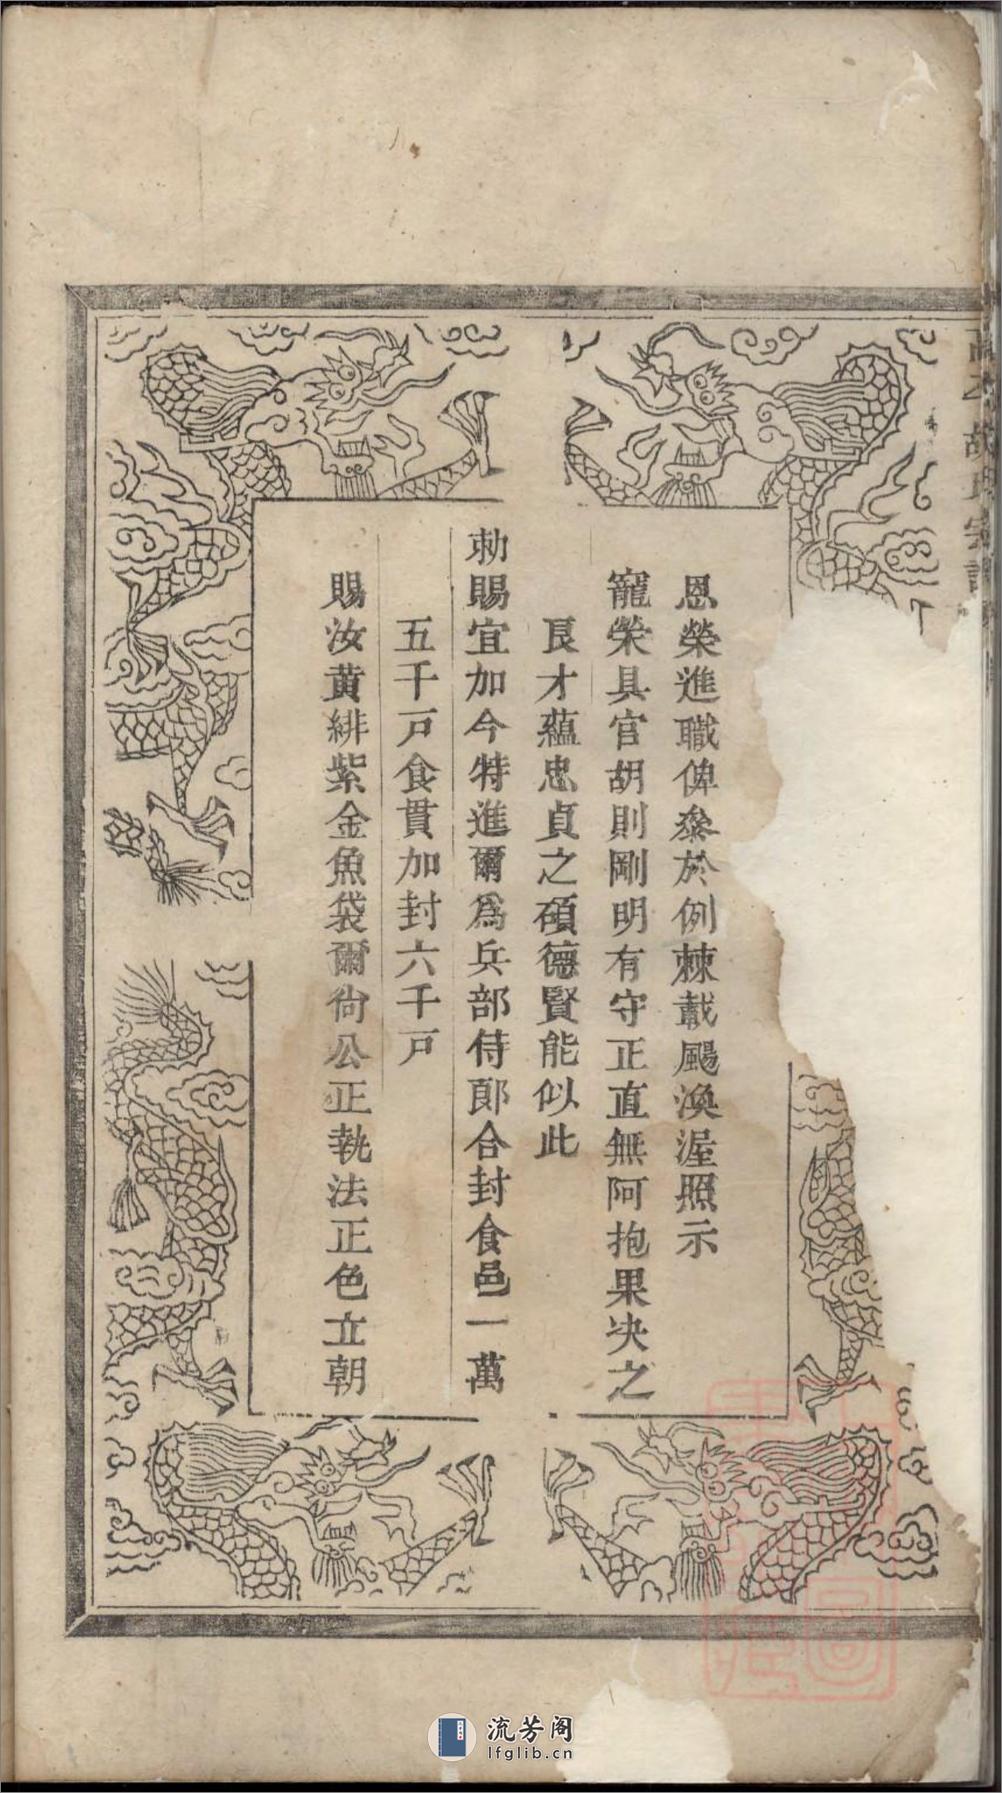 恩榮進職俾叅於例棘載颺渙渥照示
寵榮具官胡則剛明有守正直無阿抱果决之
良才蘊忠貞之碩德賢能似此
勅賜宜加今特進爾爲兵部侍郎合封食邑一萬
五千戸食貫加封六千戸
賜汝黃緋紫金魚袋爾尙公正執法正色立朝
胡氏宗譜
流芳阁
lfglib.cn